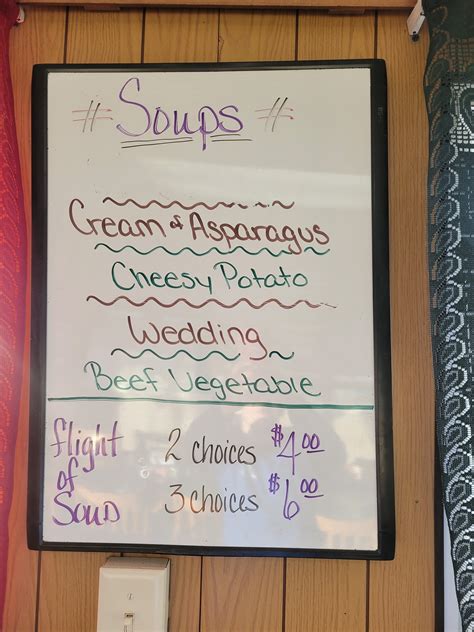 # Soups #
Cream of Asparagus
Cheesy Potato
Wedding
Beef Vegetable
flight
of
Soup
2 choices $4.00
3 choices $6.00